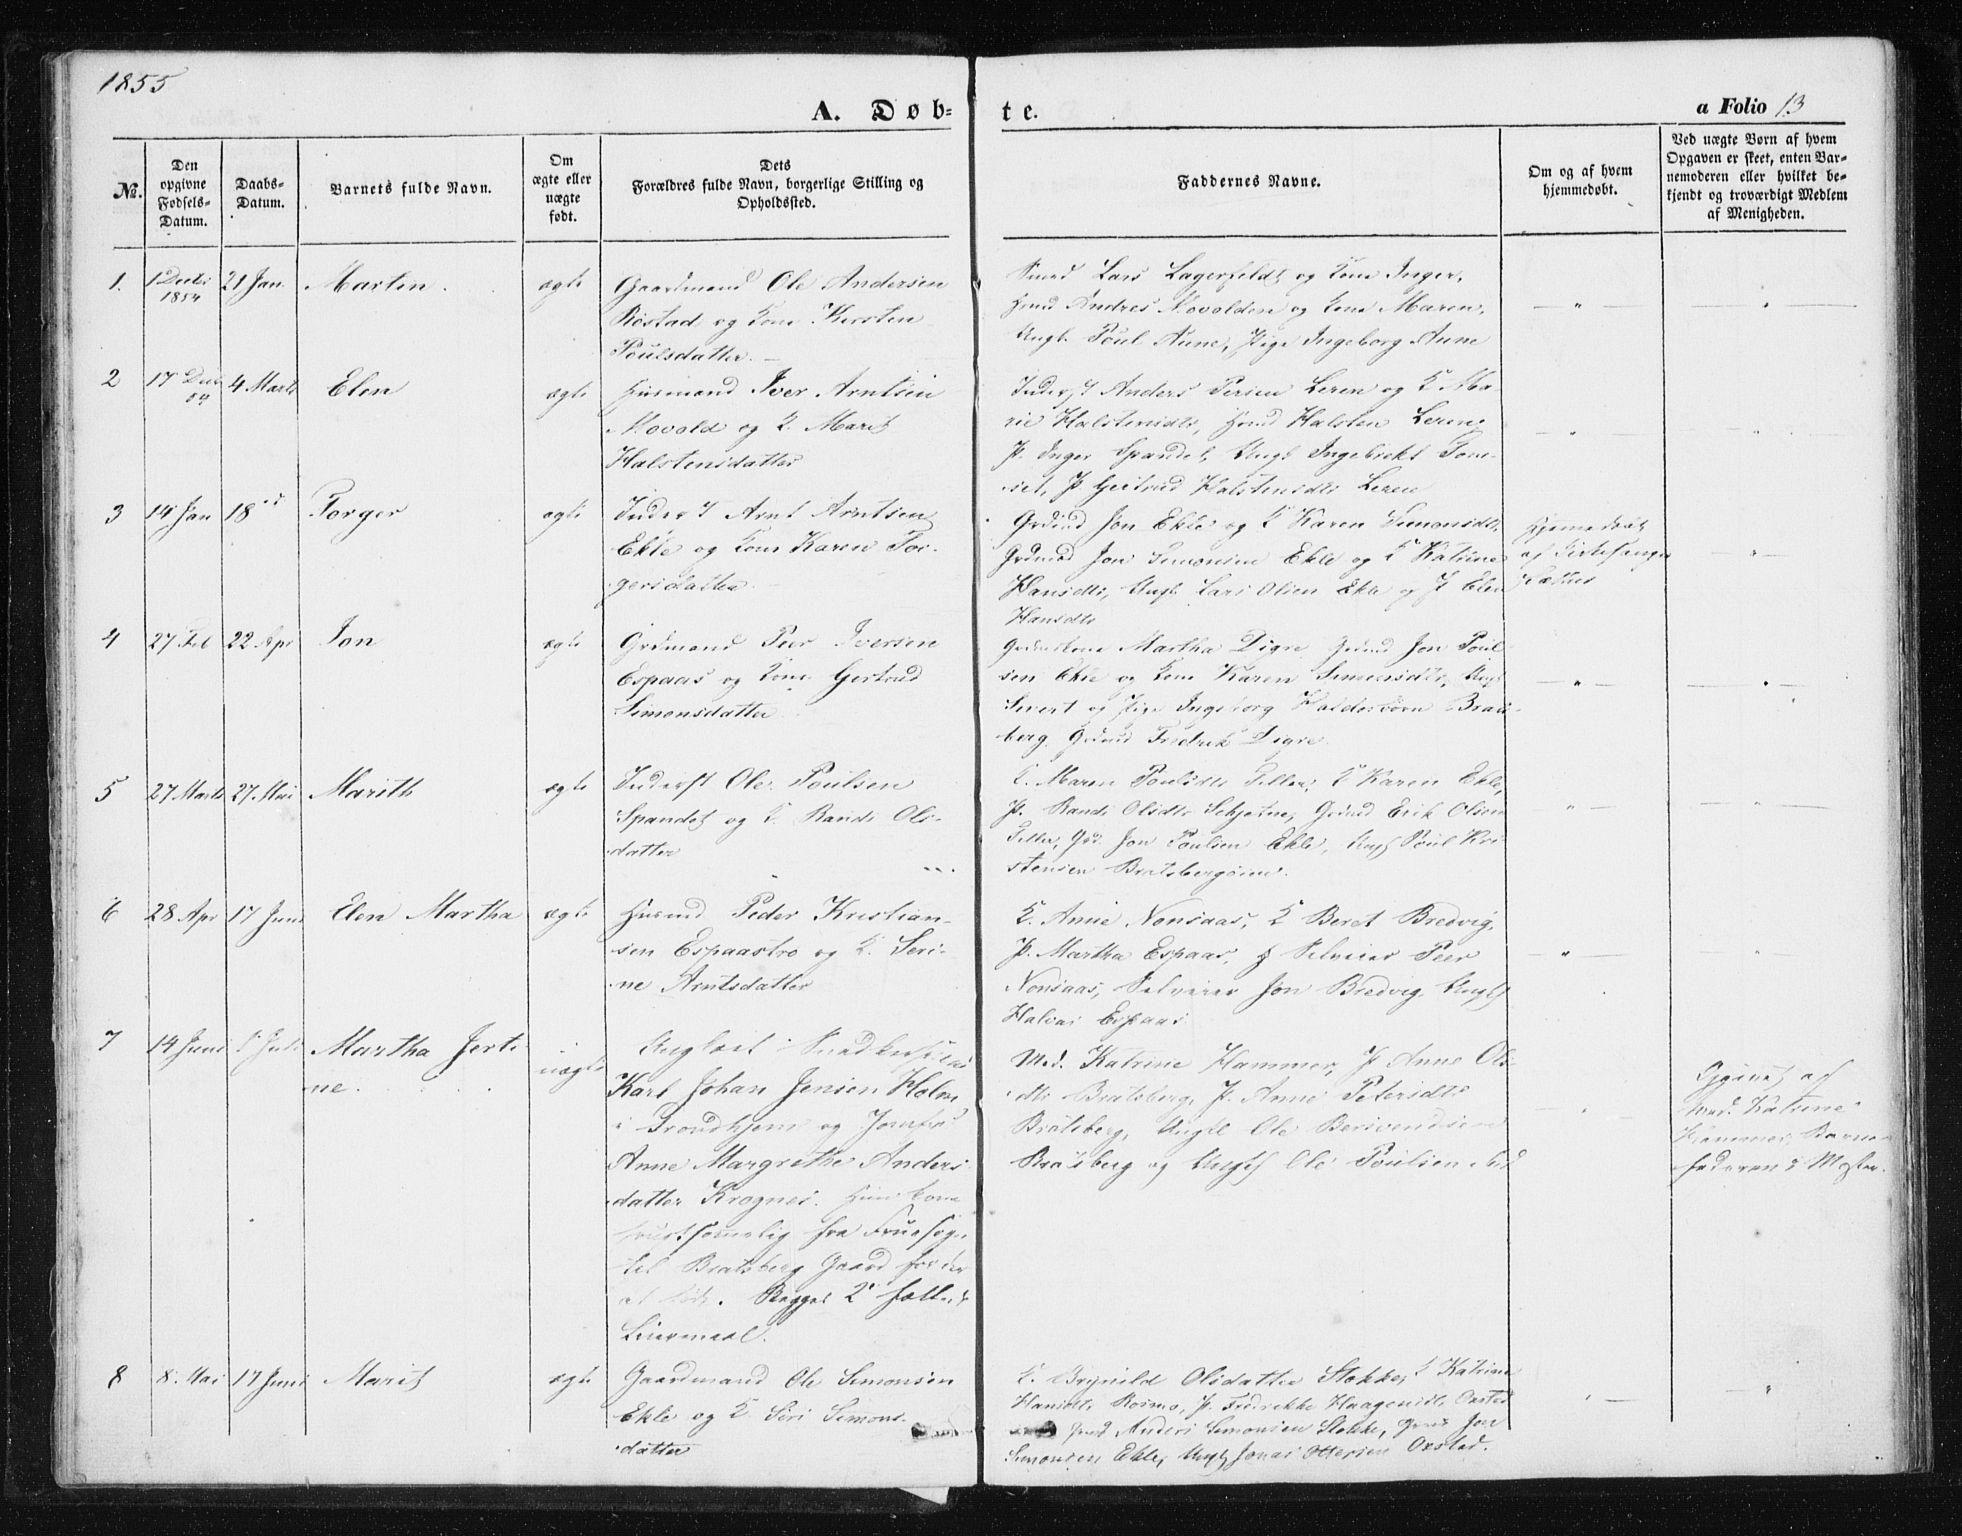 1855
A. Døb-
te.
a Folio 13
No.
Den opgivne Fødsels-Datum.
Daabs-Datum.
Barnets fulde Navn.
Om ægte eller uægte født.
Dets
Forældres fulde Navn, borgerlige Stilling og
Opholdssted.
Faddernes Navne.
Om og af hvem
hjemmedøbt.
Ved uægte Børn af hvem
Opgaven er skeet, enten Bar-
nemoderen eller hvilket be-
kjendt og troværdigt Medlem
af Menigheden.
1. 1 Decbr 1854 21 Jan Martin. ægte
Gaardmand Ole Andersen
Røstad og Kone Kirsten
Poulsdatter.
Smed Lars Lagerfeldt og Kone Inger,
Hmd Andres Movolden og Kone Maren,
Ungk. Poul Aune, Pige Ingeborg Aune
2 17 Dec 54 4 Marts Elen ægte
Huusmand Iver Arntsen
Movold og K. Marit
Halstensdatter
Inderst Anders Persen Leren og K Ma-
rie Halstensdtr, Hmd Halsten Leren,
P. Inger Spandet, Ungk Ingebrikt Tom-
set, P Gertrud Halstensdtr Leren
3 14 Jan 18 Torger ægte
Inderst Arnt Arntsen
Ekle og Kone Karen Tor-
gersdatter
Grdmd Jon Ekle og K Karen Simonsdtr,
Grdmd Jon Simonsen Ekle og K Katrine
Hansdtr, Ungk Lars Olsen Ekle og P Elen
Hansdtr
Hjemmedøbt
af Kirkesanger
Sættes
4 27 Feb 22 Apr Jon ægte
Grdmand Peer Iversen
Espaas og Kone Gertrud
Simonsdatter
Grdmdskone Martha Digre, Grdmd Jon Poul-
sen Ekle og Kone Karen Simonsdtr, Ungk
Sivert og Pige Ingeborg Haldorsbørn Brats-
berg. Grdmd Fredrik Digre.
5 27 Marts 27 Mai Marith ægte
Inderst Ole Poulsen
Spandet og K. Randi Ols-
datter
K. Maren Poulsdtr Tiller, K Karen Ekle,
P. Randi Olsdtr Sckjetne, Grdmd Erik Olsen
Tiller, Grd. Jon Poulsen Ekle, Ungk Poul Kri-
stensen Bratsbergøien.
6 28 Apr 17 Juni Elen Martha ægte
Husmd Peder Kristian-
sen Espaastrø og K. Seri-
ne Arntsdatter
K. Anne Nonsaas, K Beret Bredvig,
P. Martha Espaas, Selveier Peer
Nonsaas, Selveier Jon Bredvig, Ungk
Halvar Espaas
7 14 Juni 1 Juli Martha Jerti-
ne. uægte
Ungkarl Snedkersvend
Karl Johan Jensen Holm
i Trondhjem og Jomfru
Anne Margrethe Anders-
datter Krognes. Hun kom
frugtsommelig fra Fruesogn
til Bratsberg Gaard for der
at føde. Begges 2 fælles
Leiermaal.
Mad. Katrine Hammer, P Anne Ols-
dtr Bratsberg, P. Anne Petersdtr
Bratsberg, Ungkl Ole Berivendsen
Bratsberg og Ungk Ole Poulsen
Opgivet af
Mad. Katrine
Hammer, Barne-
faderens Moster.
8 8. Mai 17 Juni Marit ægte
Gaardmand Ole Simonsen
Ekle og K Siri Simons-
datter
K. Brynild Olsdatter Stokke, K Katrine
Hansdtr Rosmo, P. Fredrikke Haagensdtr Oxstad
Hmd Anders Simonsen Stokke, Grmd Jon
Simonsen Ekle, Ungk Jonas Ottersen Oxstad.